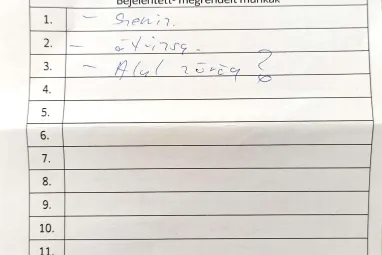 Bejelentett- megrendelt munkák
1. - Szerviz.
2. - átvizsg.
3. - Alul zörög?
4.
5.
6.
7.
8.
9.
10.
11.